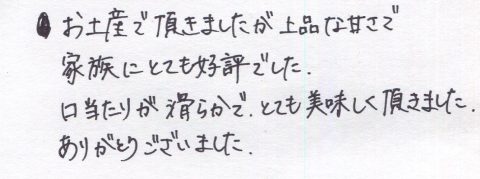 お土産で頂きましたが上品な甘さで
家族にとても好評でした.
口当たりが滑らかで.とても美味しく頂きました.
ありがとうございました.